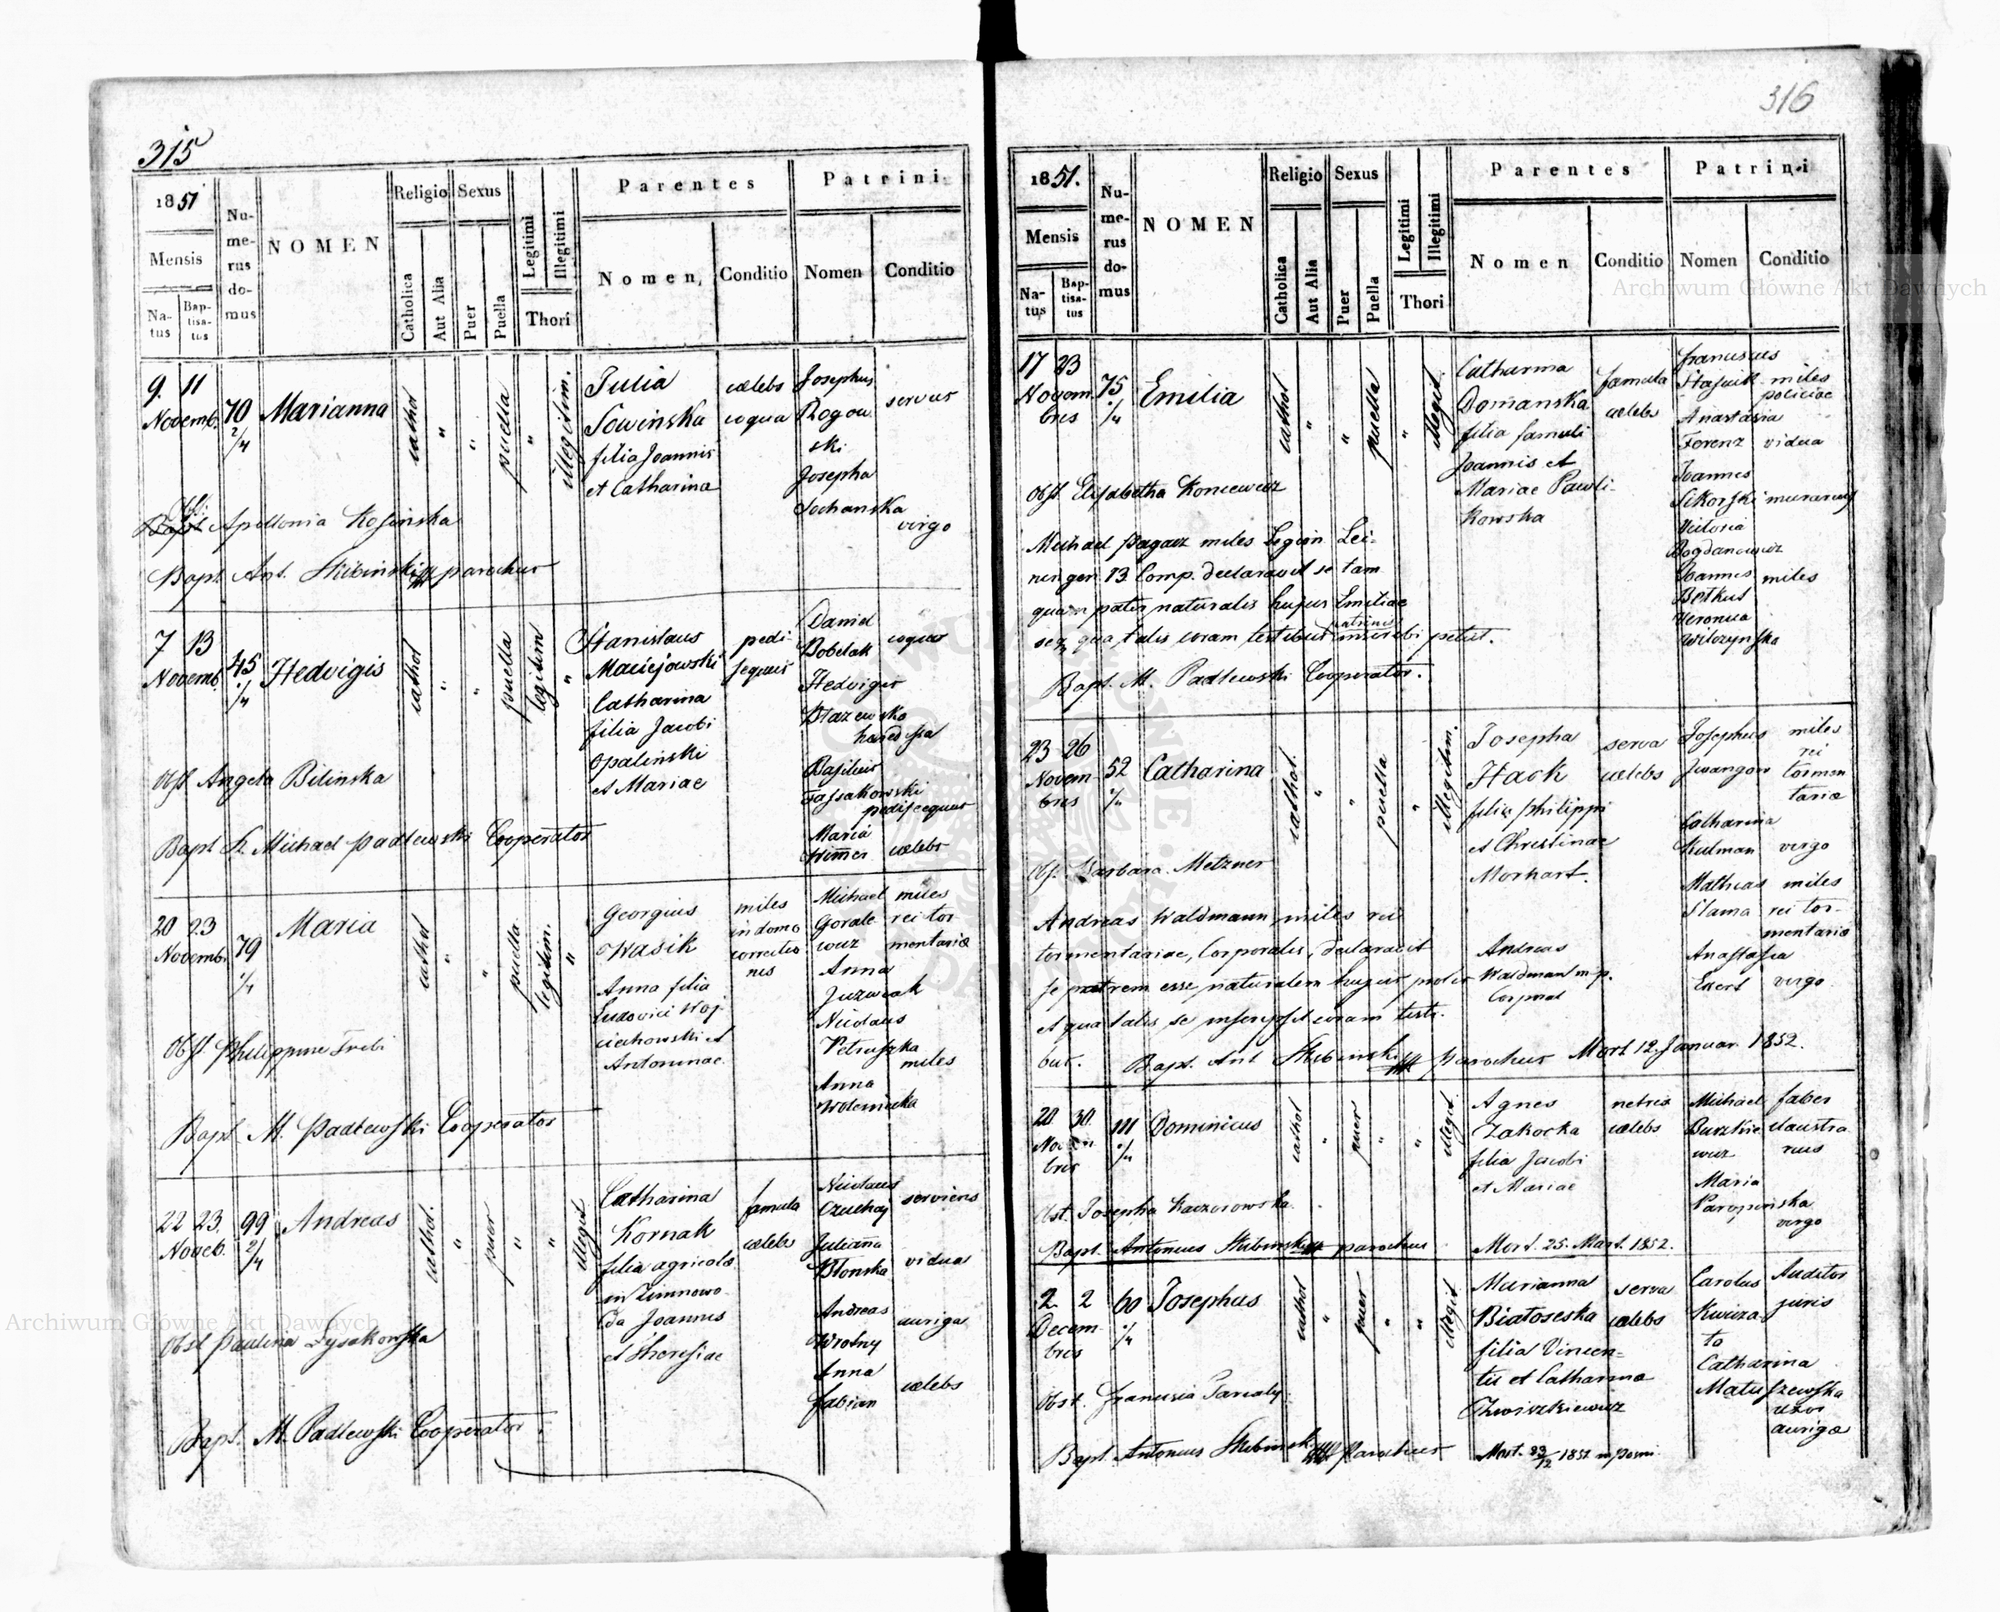 315
1851
Mensis
Na-
tus
Bap-
tisa-
tus
Nu-
me-
rus
do-
mus
NOMEN
Religio
Catholica
Aut Alia
Sexus
Puer
Puella
Legitimi
Illegitimi
Thori
Parentes
Nomen,
Conditio
Patrini
Nomen
Conditio
9. 11
Novemb.
70
2/4
Marianna
cathol
"
"
puella
"
illegitim.
Julia
Sowinska
filia Joannis
et Catharina
caelebs
coqua
Josephus
Rogow
ski
servus
Josepha
Sochanska
virgo
Obs. Apollonia Kosinska
Bapt Ant. Skibinski parochus
7 13
Novemb.
45
1/4
Hedvigis
cathol
"
"
puella
legitim
"
Stanislaus
Maciejowski
Catharina
filia Jacobi
Opalinski
et Mariae
pedi-
sequus
Daniel
Bobelak
coquus
Hedviges
Blazewska
Basilius
pedissequus
Maria
Wimmer
caelebs
Obst Angela Bilinska
Bapt. Michael Padlewski Cooperator
20 23
Novemb.
79
1/4
Maria
cathol
"
"
puella
legitim.
"
Georgius
Wasik
Anna filia
Ludovici Woj-
ciechowski et
Antoninae
miles
in domo
correctio
nis
Michael
Gorale
wicz
miles
rei tor
mentariae
Anna
Juzwiak
Nicolaus
Petruszka
miles
Anna
Obst. Philippine Trebi
Bapt M. Padlewski Cooperator
22 23
Noveb.
99
2/4
Andreas
cathol.
"
puer
"
"
illegit
Catharina
Kornak
filia agricolae
in Zimnowo-
da Joannis
et Theresiae
famula
caelebs
Nicolaus
Czuchaj
serviens
Julianna
Blonska
vidua
Andreas
Wrotny
auriga
Anna
Fabian
caelebs
Obst Paulina Lysakowska
Bapt. M. Padlewski Cooperator.
316
1851.
Mensis
Na-
tus
Bap-
tisa-
tus
Nu-
me-
rus
do-
mus
NOMEN
Religio
Catholica
Aut Alia
Sexus
Puer
Puella
Legitimi
Illegitimi
Thori
Parentes
Nomen
Conditio
Patrini
Nomen
Conditio
17 23
Novem
bris
75
1/4
Emilia
cathol
"
"
puella
"
illegit
Catharina
Domanska
filia famuli
Joannis et
Mariae Pawli-
kowska
famula
caelebs
Franciscus
Stasiuk
miles
policiae
Anastasia
Ferenz
vidua
Joannes
Sikorski
murarius
Victoria
Bogdanowicz
Joannes
Betkus
miles
Veronica
Wilczynska
Obst. Elisabetha Koniewicz
Michael Pagacz miles Legion Lei-
ningen 13 Comp. declaravit se tam
quam patrem naturalis hujus Emiliae
seq qua talis coram testibus patrinis inscribi petiit.
Bapt. M. Padlewski Cooperator.
23 26
Novem-
bris
52
1/4
Catharina
cathol.
"
"
puella
"
illegitim.
Josepha
Hack
filia Philippi
et Christinae
Morhart.
serva
caelebs
Josephus
Jwangow
miles
rei
tormen
tariae
Catharina
Kulman
virgo
Mathias
Slama
miles
rei tor-
mentariae
Anastasia
Ekert
virgo
Obs. Barbara Metzner
Andreas Waldmann, miles rei
tormentariae, Corporalis, declaravit
se patrem esse naturalem hujus prolis
et qua talis se inscripsit coram testi-
bus.
Andreas
Waldman mp.
Corporal
Bapt. Ant Skibinski Parochus Mort 12. Januar. 1852.
20 30
bris
111
1/4
Dominicus
cathol
"
puer
"
"
illegit.
Agnes
Zakocka
filia Jacobi
et Mariae
netrix
caelebs
Michael
Burzkie
wicz
faber
claustra
rius
Maria
Paropinska
virgo
Obst. Josepha Kaczorowska
Bapt. Antonius Skibinski parochus Mort. 25. Mart. 1852.
2 2
Decem-
bris
60
1/4
Josephus
cathol
"
puer
"
"
illegit
Marianna
Bialoseska
filia Vincen-
tii et Catharina
serva
caelebs
Carolus
Kwiza-
to
Auditor
juris
Catharina
Matuszewska
uxor
aurigae
Obst. Francisia
Bapt. Antonius Skibinski Parochus Mort. 23/12 1851
Archiwum Główne Akt Dawnych
Archiwum Główne Akt Dawnych